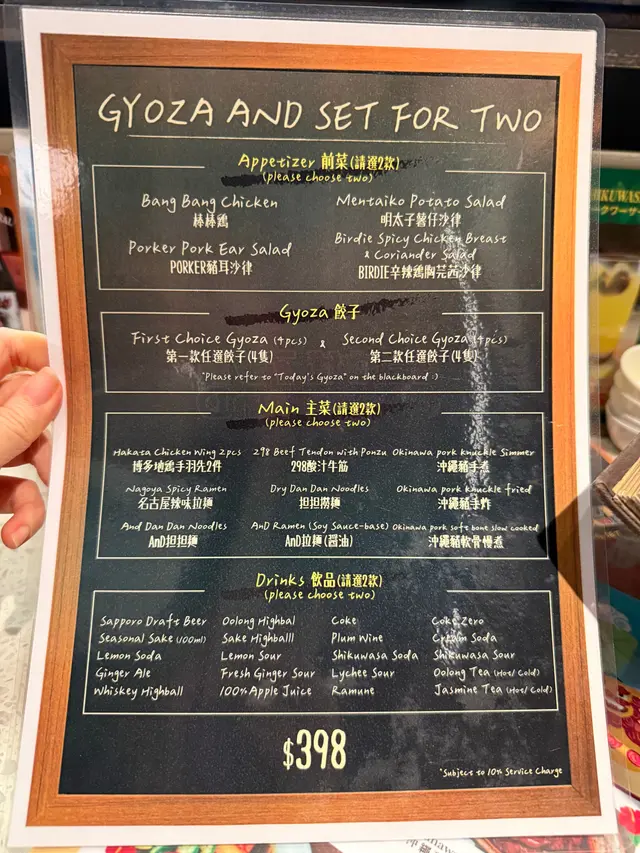 GYOZA AND SET FOR TWO
Appetizer 前菜(請選2款)
(please choose two)
Bang Bang Chicken
棒棒鶏
Mentaiko Potato Salad
明太子薯仔沙律
Porker Pork Ear Salad
PORKER豬耳沙律
Birdie Spicy Chicken Breast
& Coriander Salad
BIRDIE辛辣鶏胸芫茜沙律
Gyoza 餃子
First Choice Gyoza (4pcs) & Second Choice Gyoza (4pcs)
第一款任選餃子(4隻) 第二款任選餃子(4隻)
*Please refer to "Today's Gyoza" on the blackboard :)
Main 主菜(請選2款)
(please choose two)
Hakata Chicken Wing 2pcs 298 Beef Tendon with Ponzu Okinawa pork knuckle Simmer
博多地鶏手羽先2件 298酸汁牛筋 沖繩豬手煮
Nagoya Spicy Ramen Dry Dan Dan Noodles Okinawa pork knuckle fried
名古屋辣味拉麵 担担撈麵 沖繩豬手炸
And Dan Dan Noodles AnD Ramen (Soy Sauce-base) Okinawa pork soft bone slow cooked
AnD担担麵 AnD拉麵(醤油) 沖繩豬軟骨慢煮
Drinks 飲品(請選2款)
(please choose two)
Sapporo Draft Beer Oolong Highbal Coke Coke Zero
Seasonal Sake (100ml) Sake Highballl Plum Wine Cream Soda
Lemon Soda Lemon Sour Shikuwasa Soda Shikuwasa Sour
Ginger Ale Fresh Ginger Sour Lychee Sour Oolong Tea (Hot/Cold)
Whiskey Highball 100% Apple Juice Ramune Jasmine Tea (Hot/Cold)
$398
*Subject to 10% Service Charge